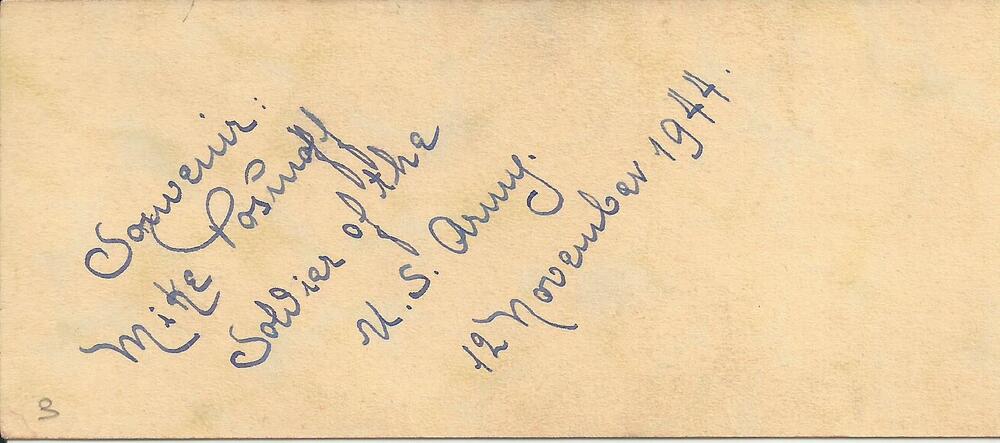 Souvenir:
Mike Posnoff
Soldier of the
U. S. Army.
12 November 1944.
3